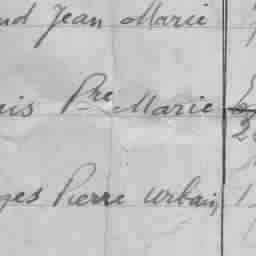 nd Jean Marie
is Pre Marie
ges Pierre Urbain